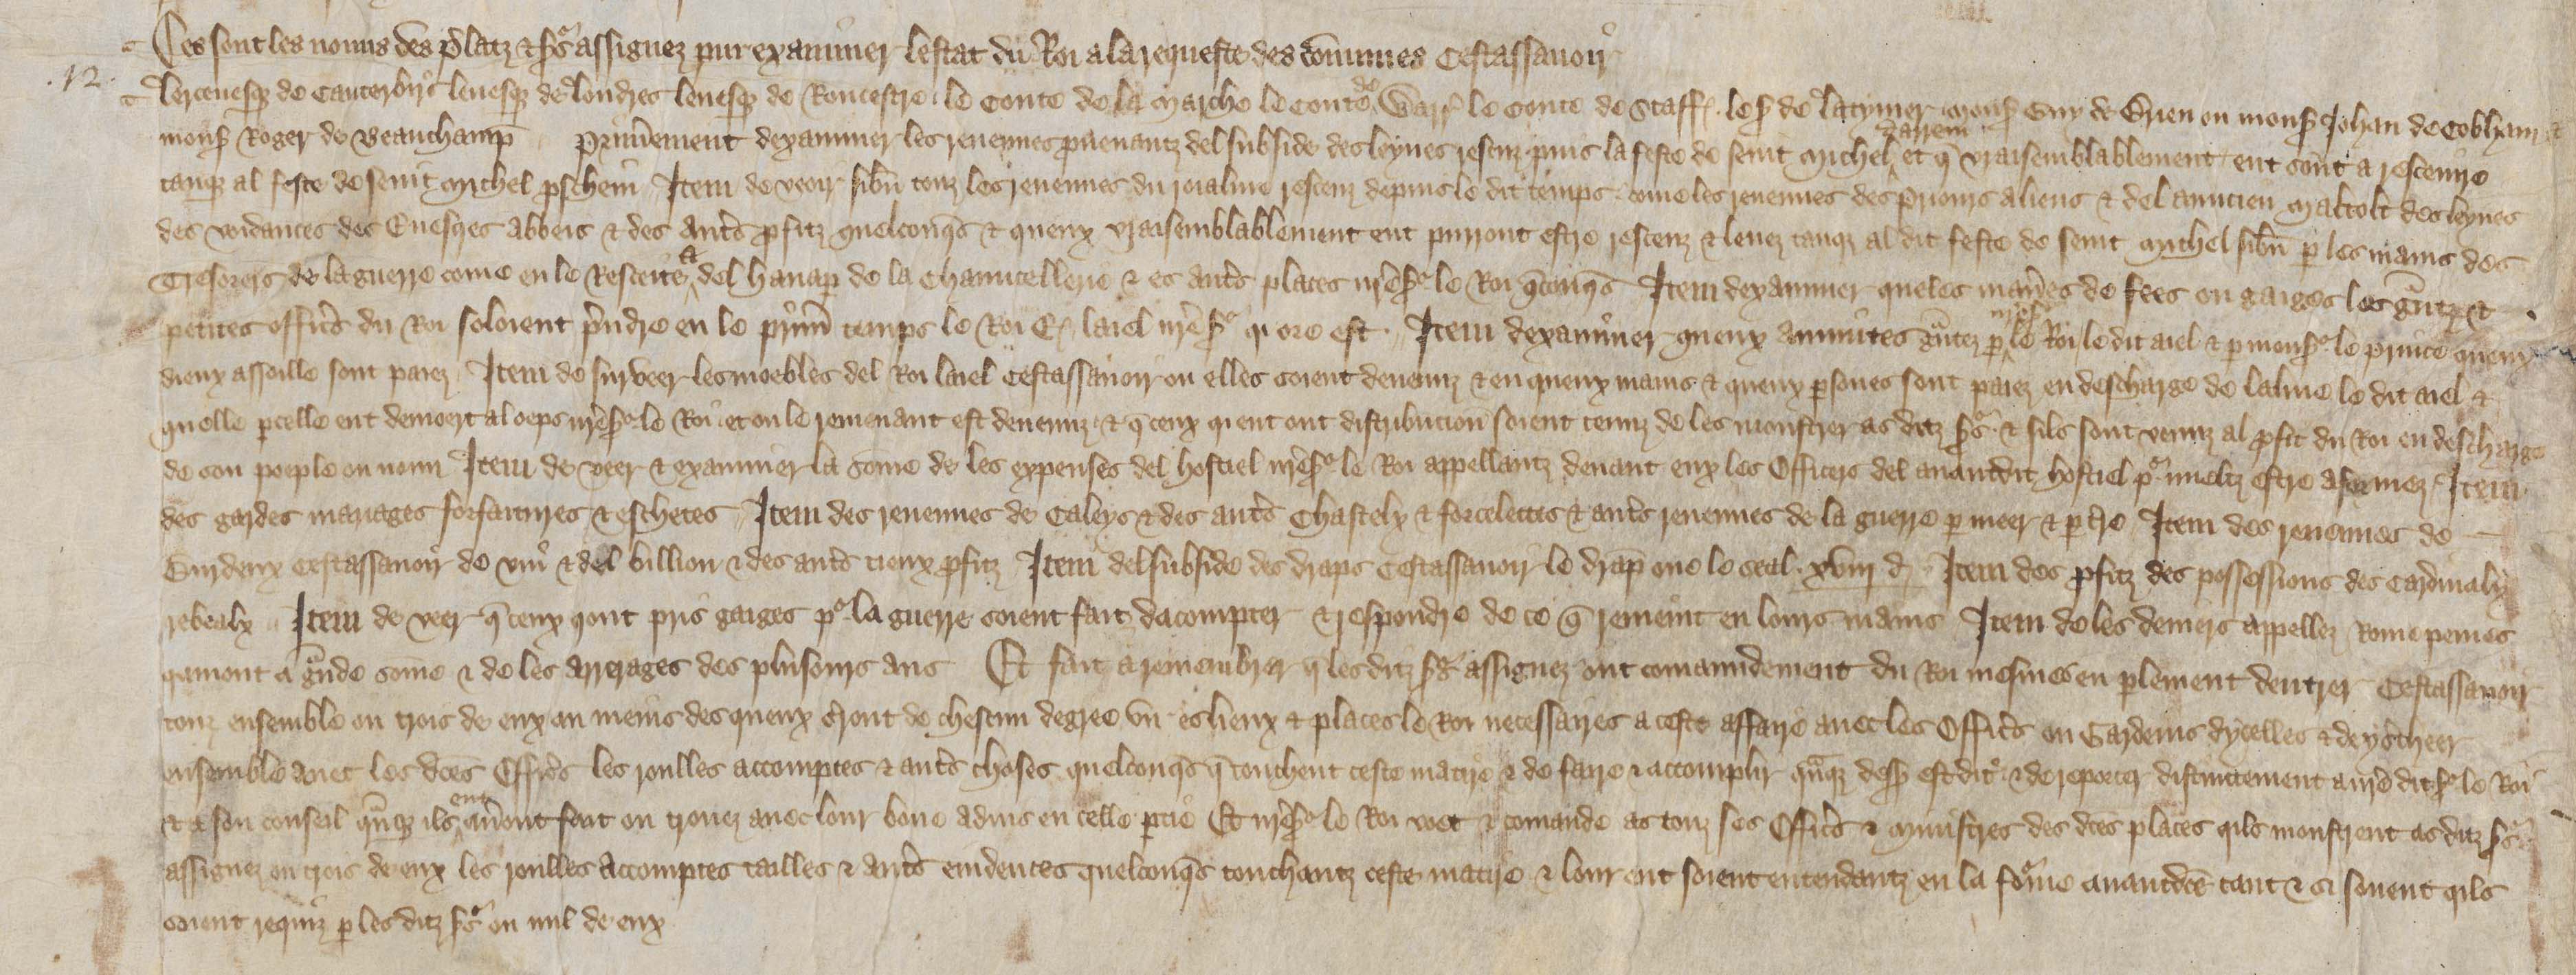 Ces sont les nouns des p̄latz & s̄rs assignez pur examiner lestat du Roi a la requeste des cōmunes Cestassavoir
.12. Lercevesq̄ de Canterbirs levesq̄ de Londres levesq̄ de Roucestre le Conte de la Marche le Conte de Warr̄ le Conte de Staff̄. le s̄r de Latymer mons̄ Guy de Brien ou mons̄ Johan de Cobham &
mons̄ Roger de Beauchamp̄ Primement dexaminer les revenues p̄venantz del subside des leynes resceuz puis la feste de seint Michel darrein et q̄ vraisemblablement ent sont a resceivre
tanq̄ al feste de seint Michel p̄schein Item de veoir sib̄n touz les revenues du roialme resceuz depuis le dit temps come les revenues des Priours aliens & del auncien maltolt des leynes
des voidances des Evesqes Abbeis & des aut̄s p̄fitz quelconq̄s & queux vraisemblablement ent purront estre resceuz & levez tanq̄ al dit feste de seint Michel sib̄n p̄ les mains des
Tresorers de la guerre come en le Resceite & del hanap̄ de la Chauncellerie & es aut̄s places n̄re s̄r le Roi q̄conq̄s Item dexaminer queles man̄es de fees ou gaiges les g̃ntz &
petites offic̄s du Roi soloient p̄ndre en le p̄m̄ temps le Roi E. laiel n̄re s̄r qi ore est. Item dexaminer queux annuites g̃ntez p̄ n̄re s̄r le Roi, le dit aiel & p̄ mons̄r le prince queux
dieux assoille sont paiez Item de surveer les moebles del Roi laiel Cestassavoir ou elles soient devenuz & en queux mains & queux p̄sones sont paiez en descharge de lalme le dit aiel &
quelle p̄celle ent demoert al oeps n̄re s̄r le Roi et ou le remenant est devenuz & q̄ ceux qi ent ont distribucion soient tenuz de les monstrer as ditz s̄rs & sils sont venuz al p̄fit du Roi en descharge
de son poeple ou noun Item de veer & examiner la sōme de les expenses del hostiel n̄re s̄r le Roi appellantz devant eux les Officers del avantdit hostiel p̄r mieltz estre aformez Item
des gardes mariages forfaitures & eschetes Item des revenues de Caleys & des aut̄s Chastelx & forcelettes & aut̄s revenues de la guerre p̄ meer & p̄ t̄re Item des revenues de
Burdeux Cestassavoir de vin & del billion & des aut̄s tieux p̄fitz Item del subside des draps Cestassavoir le drap̄ ove le seal xviij d̄ Item des p̄fitz des possessions des Cardinalx
rebealx Item de veer q̄ ceux qont pris gaiges p̄r la guerre soient fait dacompter & respondre de ce q̄ remeint en lours mains Item de les deniers appellez Rome penies
qamont a g̃nde sōme & de les arrerages des plusours ans Et fait a remembrer q̄ les ditz s̄rs assignez ont comaundement du Roi mesmes en p̄lement dentrer Cestassavoir
touz ensemble ou trois de eux au meins des queux s̄ront de chescun degree un es lieux & places le Roi necessaires a ceste affaire avec les Offic̄s ou Gardeins dycelles & de y s̄cheer
ensemble avec les dc̄es Offic̄s les roulles accomptes & aut̄s choses quelconq̄s q̄ touchent ceste matire & de faire & accomplir q̃nq̄ dess̄ est dit. & de reporter distinctement a n̄re dit s̄r le Roi
& a son conseil q̃nq̄ ils ent av̄ont feat ou trovez avec lour bone advis en celle p̄tie Et n̄re s̄r le Roi voet & comande as touz ses Offic̄s & ministres des dc̄es places qils monstrent as ditz s̄rs
assignez ou trois de eux les roulles accomptes tailles & aut̄s evidences quelconq̄s touchantz ceste matire & lour ent soient entendantz en la fo̅rme avantdc̄e tant & si sovent qils
soient requiz p̄ les ditz s̄rs ou nul de eux